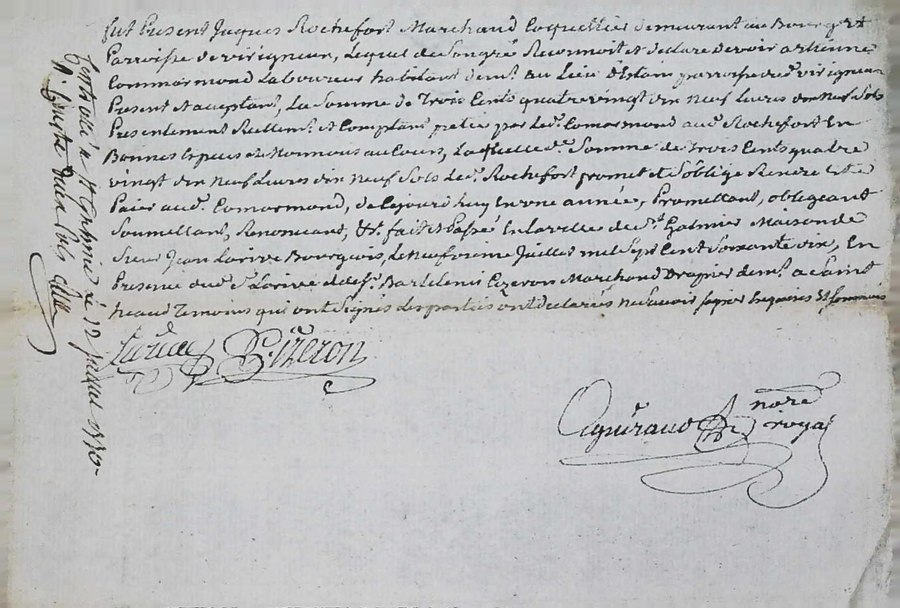 fut Present Jacques Rochefort Marchand Coquettier demeurant au Bourg et
Parroisse de virigneux, Lequel de Son gré Reconnoit et declare devoir a Etienne
Commarmond Laboureur habitant demt. au Lieu parroisse dud. virigneux
Present et acceptant, La Somme de Trois Cents quatre vingt dix Neuf Livres dix Neuf Sols
Presentement Reellemt. et Comptant pretée par Led. Comarmond aud. Rochefort En
Bonnes Espèces de au Cours, Laquelle de. Somme de trois Cents quatre
vingt dix Neuf Livres dix Neuf Sols Led. Rochefort promet et S'oblige Rendre Et
Paier aud. Comarmond, de Cejourd'huy En une année, Promettant, obligeant
Soumettant, Renonceant, &c. fait et Passé En La ville de St. Galmier Maison de
Sieur Jean Larive Bourgeois, Le Neufvieme Juillet mil Sept Cent Soixante dix, En
Presence dud. Sr. Larive et de Sr. Bartelemi Ezeron Marchand Drapier demt. a Saint
heand Temoins qui ont Signés Les parties ont declarés ne Savoir signer Enquises Et Sommées
Larive Ezeron
nore
royal
Contrôlé à St. Galmier le 12 juillet 1770